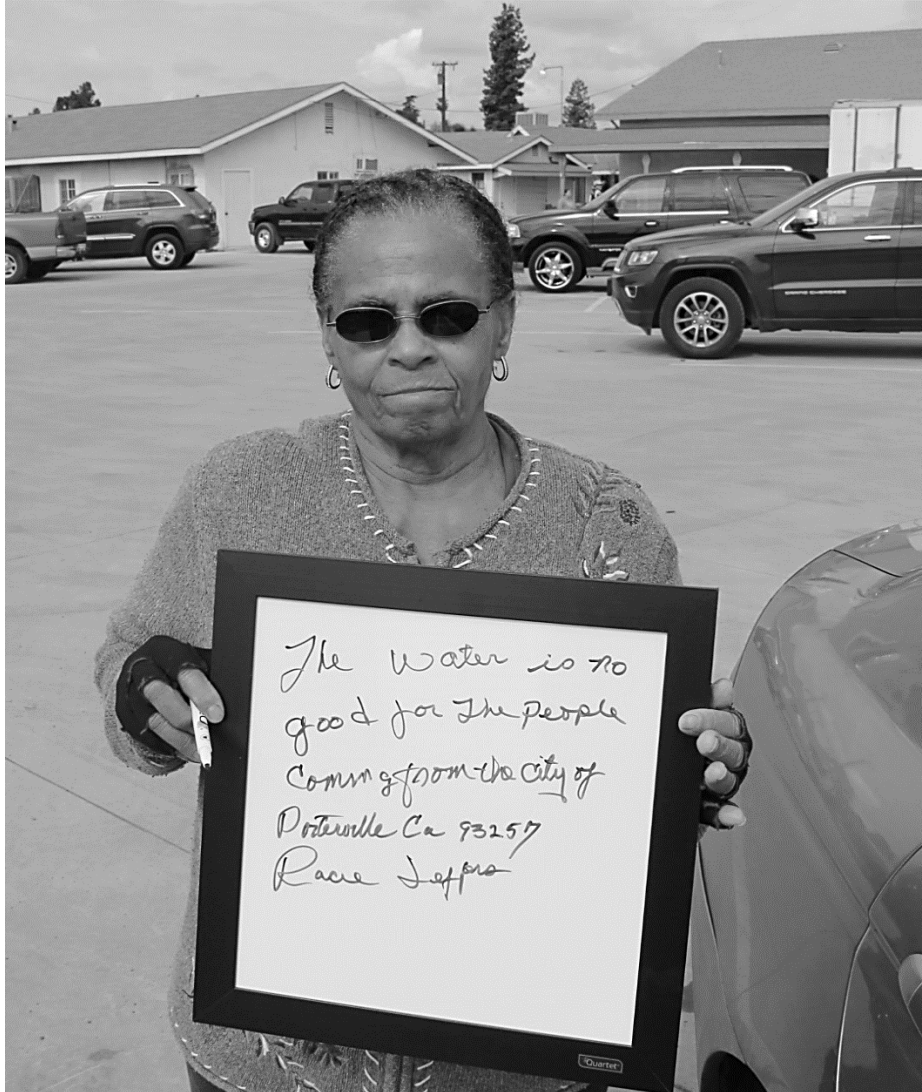 The water is no
good for The people
Coming from the City of
Porterville Ca 93257
Quartet
GRAND CHEROKEE